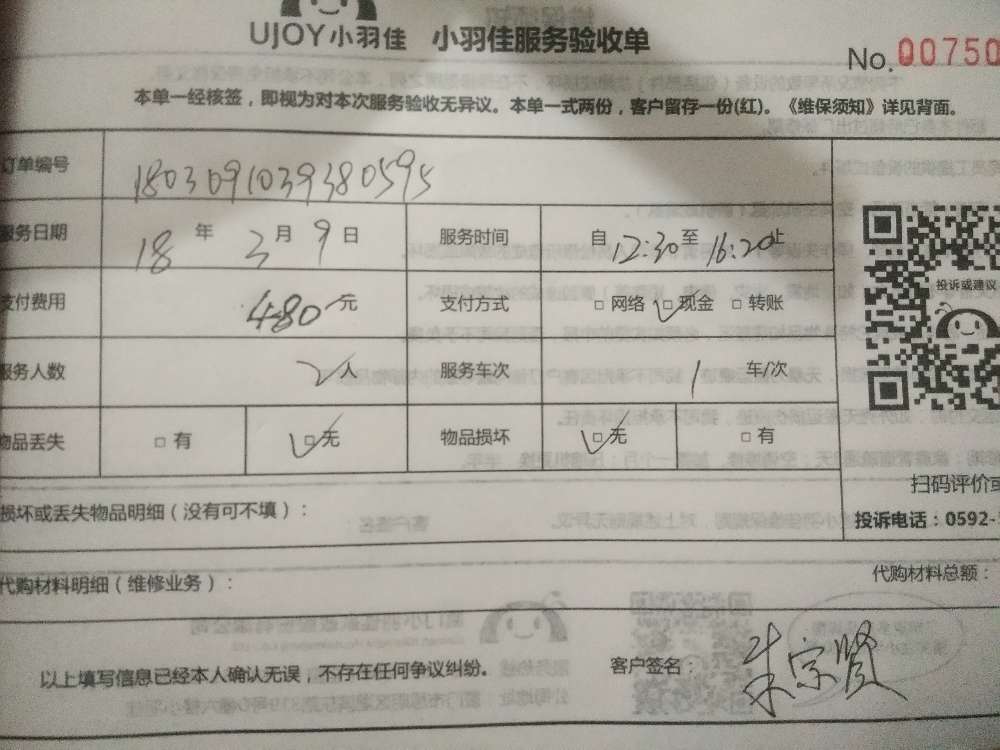 UJOY小羽佳 小羽佳服务验收单
No. 00750
本单一经核签，即视为对本次服务验收无异议。本单一式两份，客户留存一份(红)。《维保须知》详见背面。
订单编号 1803091039380595
服务日期 18 年 3 月 9 日 服务时间 自 12:30 至 16:20 止
支付费用 480 元 支付方式 □ 网络 □ 现金 □ 转账
投诉或建议
服务人数 2 人 服务车次 1 车/次
物品丢失 □ 有 □ 无 物品损坏 □ 无 □ 有
扫码评价或
损坏或丢失物品明细（没有可不填）：
投诉电话：0592-
代购材料明细（维修业务）：
代购材料总额：
以上填写信息已经本人确认无误，不存在任何争议纠纷。 客户签名： 朱宗贤